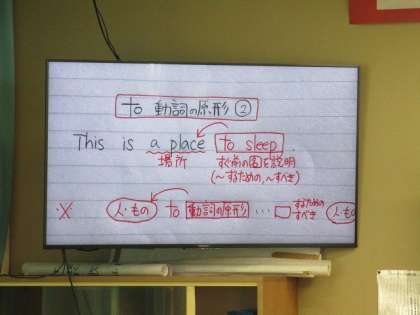 to 動詞の原形 ②
This is a place to sleep.
場所 すぐ前の名を説明
(〜するための,〜すべき)
※ 人・もの to 動詞の原形 … □ するための すべき 人・もの